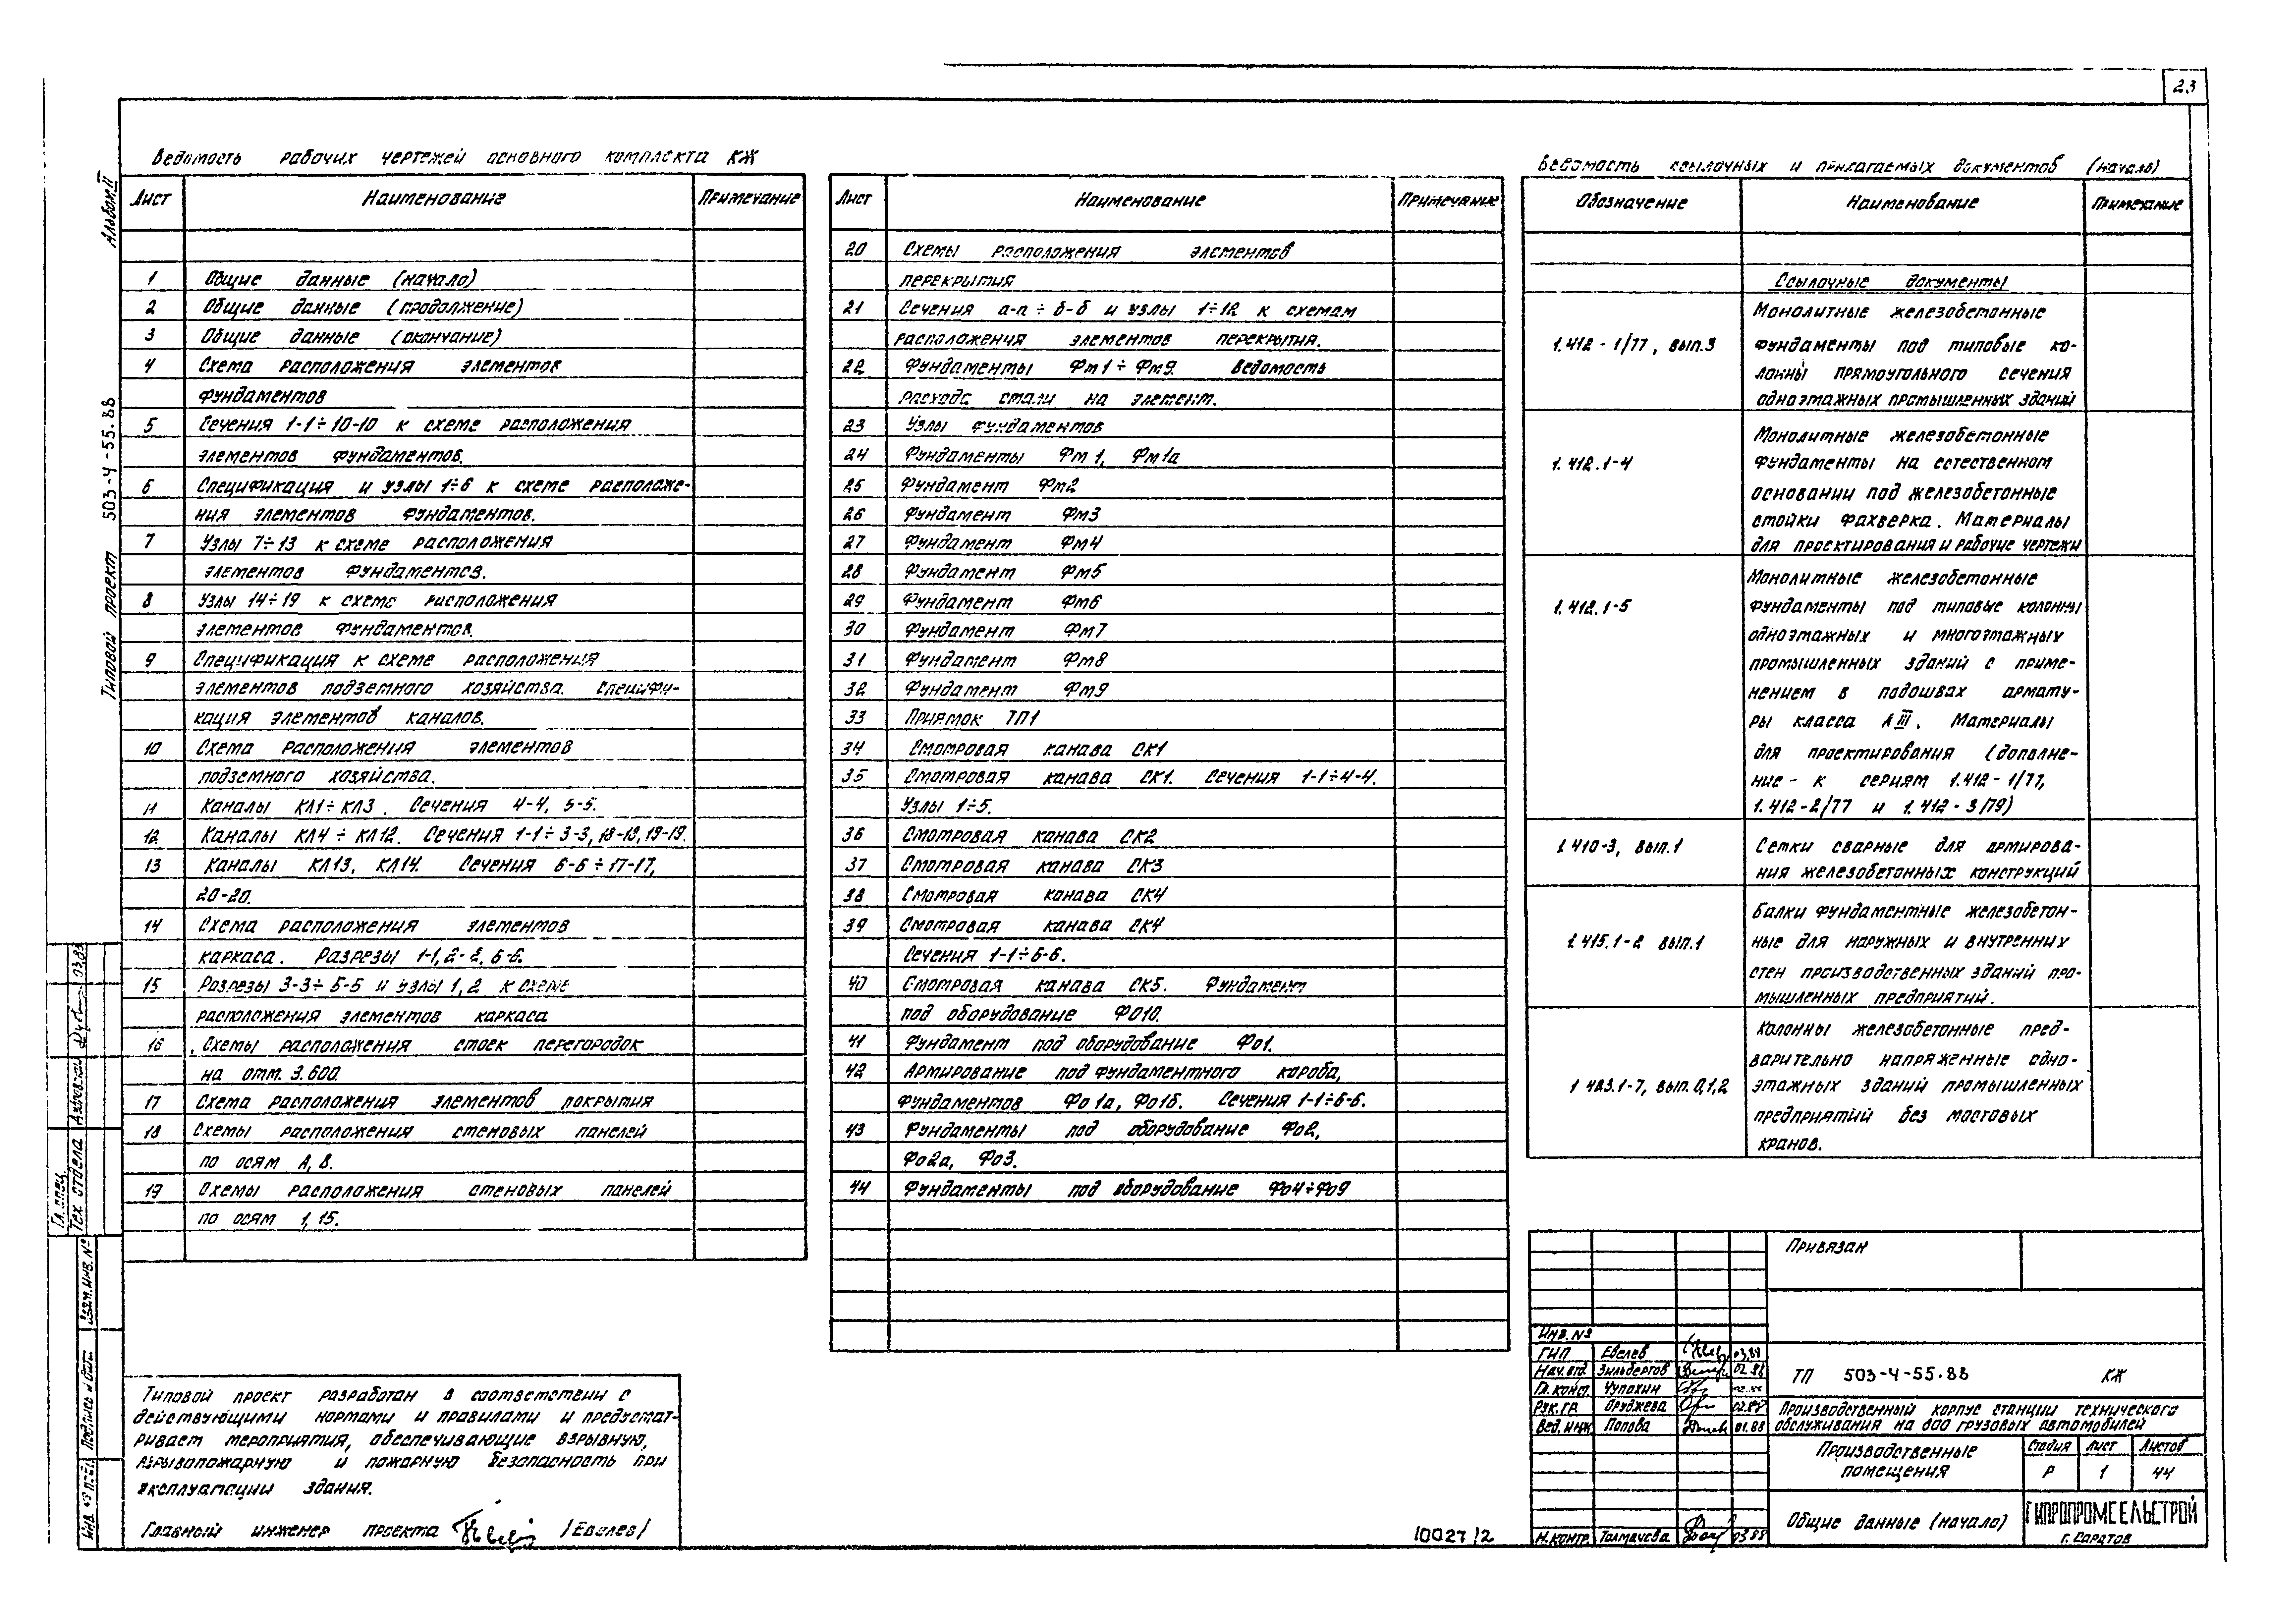 23
Альбом II
Типовой проект 503-4-55.88
Ведомость рабочих чертежей основного комплекта КЖ
Лист Наименование Примечание
1 Общие данные (начало)
2 Общие данные (продолжение)
3 Общие данные (окончание)
4 Схема расположения элементов
фундаментов
5 Сечения 1-1÷10-10 к схеме расположения
элементов фундаментов.
6 Спецификация и узлы 1÷6 к схеме расположе-
ния элементов фундаментов.
7 Узлы 7÷13 к схеме расположения
элементов фундаментов.
8 Узлы 14÷19 к схеме расположения
элементов фундаментов.
9 Спецификация к схеме расположения
элементов подземного хозяйства. Специфи-
кация элементов каналов.
10 Схема расположения элементов
подземного хозяйства.
11 Каналы КЛ1÷КЛ3. Сечения 4-4, 5-5.
12 Каналы КЛ4÷КЛ12. Сечения 1-1÷3-3, 18-18, 19-19.
13 Каналы КЛ13, КЛ14. Сечения 6-6÷17-17,
20-20.
14 Схема расположения элементов
каркаса. Разрезы 1-1, 2-2, 6-6.
15 Разрезы 3-3÷5-5 и узлы 1, 2 к схеме
расположения элементов каркаса
16 Схемы расположения стоек перегородок
на отм. 3.600.
17 Схема расположения элементов покрытия
18 Схемы расположения стеновых панелей
по осям А, В.
19 Схемы расположения стеновых панелей
по осям 1, 15.
Лист Наименование Примечание
20 Схемы расположения элементов
перекрытия
21 Сечения а-а÷б-б и узлы 1÷12 к схемам
расположения элементов перекрытия.
22 Фундаменты Фм1÷Фм9. Ведомость
расхода стали на элемент.
23 Узлы фундаментов
24 Фундаменты Фм1, Фм1а
25 Фундамент Фм2
26 Фундамент Фм3
27 Фундамент Фм4
28 Фундамент Фм5
29 Фундамент Фм6
30 Фундамент Фм7
31 Фундамент Фм8
32 Фундамент Фм9
33 Приямок ТП1
34 Смотровая канава СК1
35 Смотровая канава СК1. Сечения 1-1÷4-4.
Узлы 1÷5.
36 Смотровая канава СК2
37 Смотровая канава СК3
38 Смотровая канава СК4
39 Смотровая канава СК4
Сечения 1-1÷6-6.
40 Смотровая канава СК5. Фундамент
под оборудование ФО10.
41 Фундамент под оборудование Фо1.
42 Армирование подфундаментного короба,
фундаментов Фо1а, Фо1б. Сечения 1-1÷6-6.
43 Фундаменты под оборудование Фо2,
Фо2а, Фо3.
44 Фундаменты под оборудование Фо4÷Фо9
Ведомость ссылочных и прилагаемых документов (начало)
Обозначение Наименование Примечание
Ссылочные документы
Монолитные железобетонные
1.412-1/77, вып.3 фундаменты под типовые ко-
лонны прямоугольного сечения
одноэтажных промышленных зданий
Монолитные железобетонные
1.412.1-4 фундаменты на естественном
основании под железобетонные
стойки фахверка. Материалы
для проектирования и рабочие чертежи
Монолитные железобетонные
1.412.1-5 фундаменты под типовые колонны
одноэтажных и многоэтажных
промышленных зданий с приме-
нением в подошвах армату-
ры класса АIII. Материалы
для проектирования (дополне-
ние - к сериям 1.412-1/77,
1.412-2/77 и 1.412-3/79)
1.410-3, вып.1 Сетки сварные для армирова-
ния железобетонных конструкций
Балки фундаментные железобетон-
1.415.1-2 вып.1 ные для наружных и внутренних
стен производственных зданий про-
мышленных предприятий.
Колонны железобетонные пред-
варительно напряженные одно-
1.423.1-7, вып.0,1,2 этажных зданий промышленных
предприятий без мостовых
кранов.
Типовой проект разработан в соответствии с
действующими нормами и правилами и предусмат-
ривает мероприятия, обеспечивающие взрывную,
взрывопожарную и пожарную безопасность при
эксплуатации здания.
Главный инженер проекта /Евелев/
10027/2
Гл. спец.
Тех. отдела 03.88
Взам. инв. №
Подпись и дата
Инв. № подл.
Привязан
Инв. №
ГИП Евелев 03.88
Нач. отд. Зильбергов 02.88
Гл. конст. Чупахин 02.88
Рук. гр. Оруджева 02.88
Вед. инж. Попова 01.88
Н. контр. Толмачева 03.88
ТП 503-4-55.88 КЖ
Производственный корпус станции технического
обслуживания на 600 грузовых автомобилей
Производственные
помещения
Стадия Лист Листов
Р 1 44
Общие данные (начало)
ГИПРОПРОМСЕЛЬСТРОЙ
г. Саратов